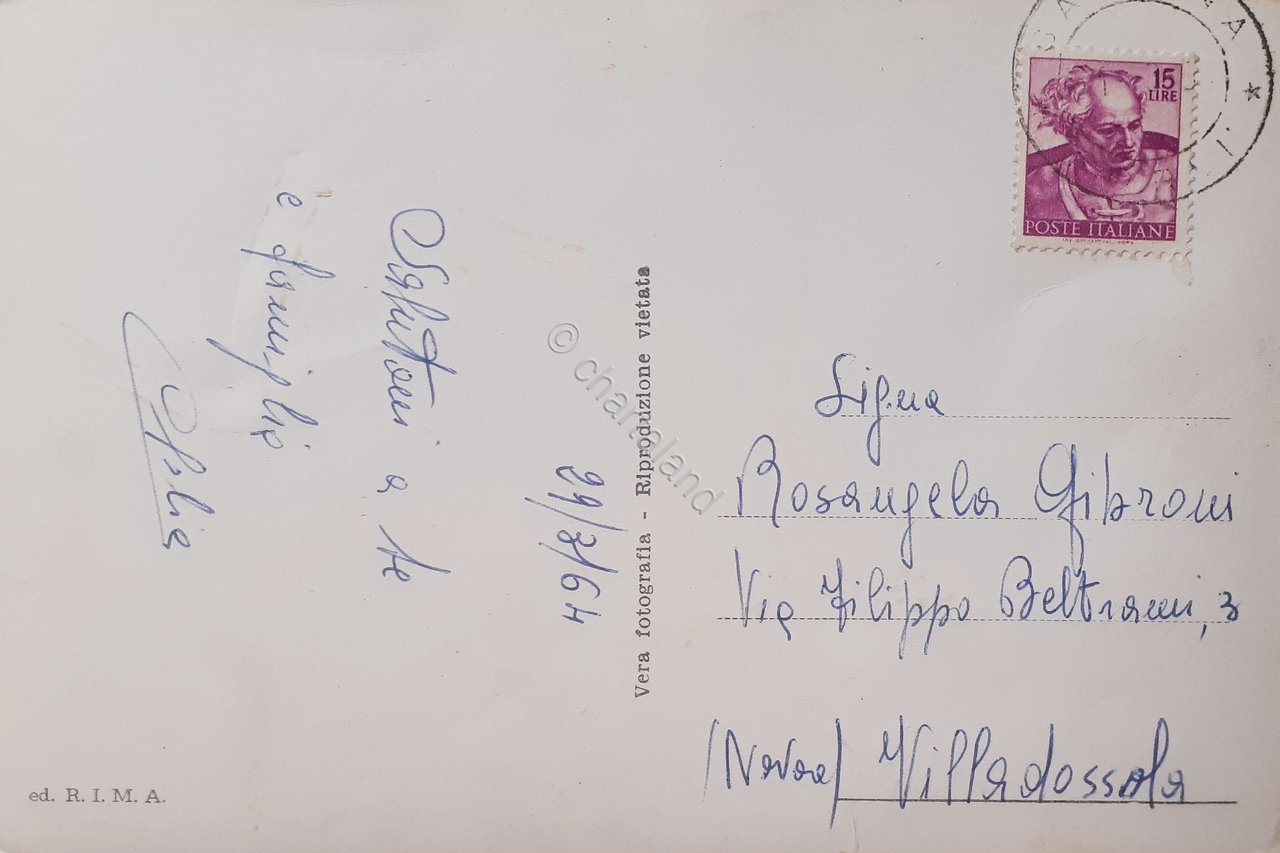 29/3/64
Salutoni a te
e famiglia
15
LIRE
POSTE ITALIANE
Vera fotografia - Riproduzione vietata
© chartaland
Sig.na
Rosangela Gibroni
Via Filippo Beltrami, 3
(Novara) Villadossola
ed. R. I. M. A.